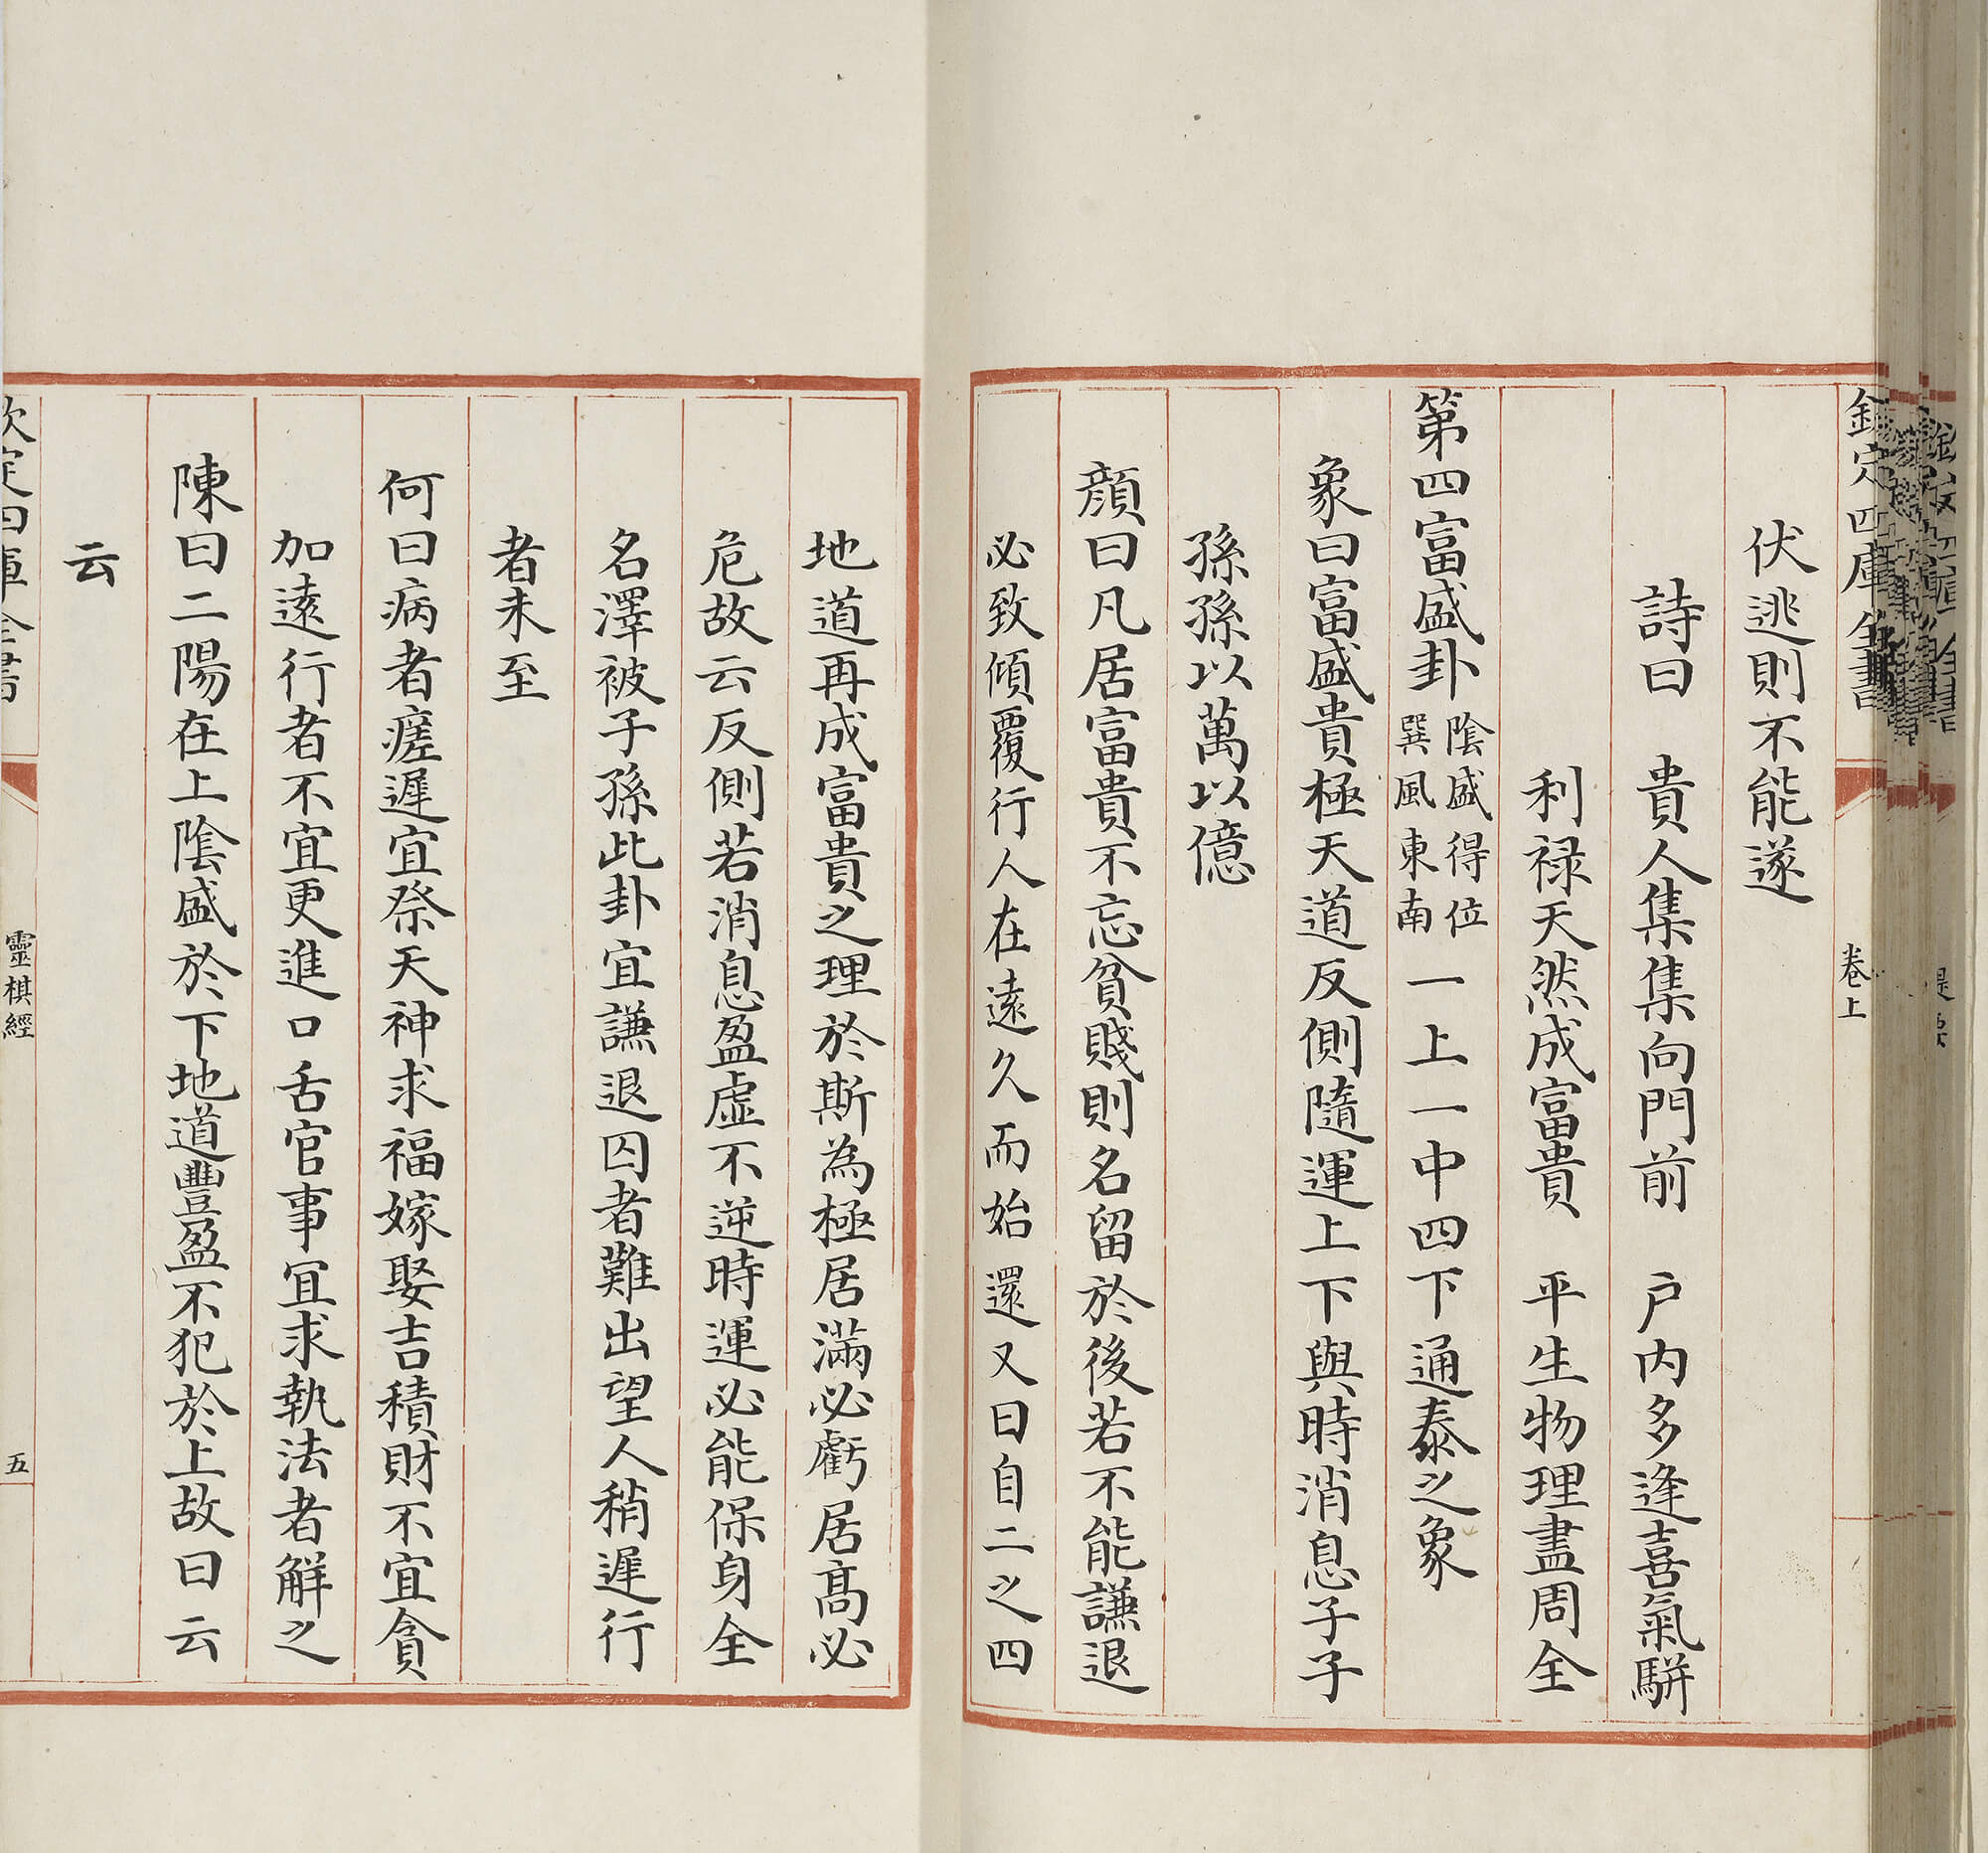 欽定四庫全書
卷上
伏逃則不能遂
詩曰　貴人集集向門前　戸内多逢喜氣駢
利禄天然成富貴　平生物理盡周全
第四富盛卦陰盛得位巽風東南一上一中四下通泰之象
象曰富盛貴極天道反側隨運上下與時消息子子
孫孫以萬以億
顔曰凡居富貴不忘貧賤則名留於後若不能謙退
必致傾覆行人在逺久而始還又曰自二之四
地道再成富貴之理於斯為極居滿必虧居髙必
危故云反側若消息盈虚不逆時運必能保身全
名澤被子孫此卦宜謙退囚者難出望人稍遲行
者未至
何曰病者瘥遲宜祭天神求福嫁娶吉積財不宜貪
加逺行者不宜更進口舌官事宜求執法者解之
陳曰二陽在上陰盛於下地道豐盈不犯於上故曰云
云
欽定四庫全書
靈棋經
五